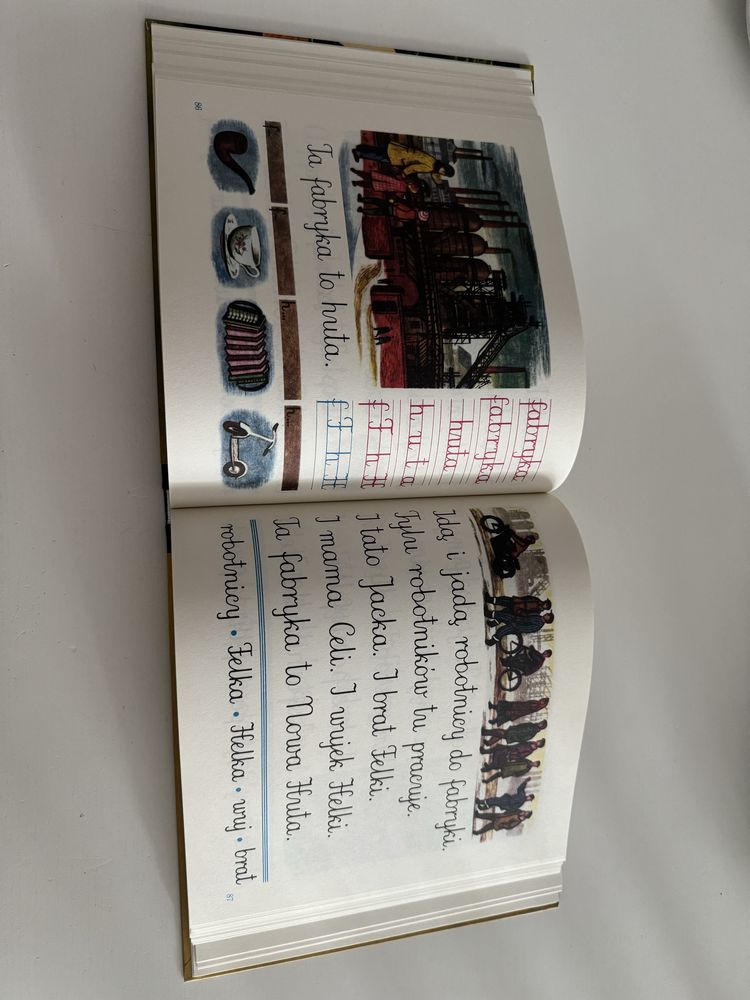 fabryka
fabryka
huta
h u t a
f F h H
f F h H
Ta fabryka to huta.
f...
f...
h...
h...
86
Idą i jadą robotnicy do fabryki.
Tylu robotników tu pracuje.
I tato Jacka. I brat Felki.
I mama Celi. I wujek Helki.
Ta fabryka to Nowa Huta.
robotnicy • Felka • Helka • wuj • brat
87